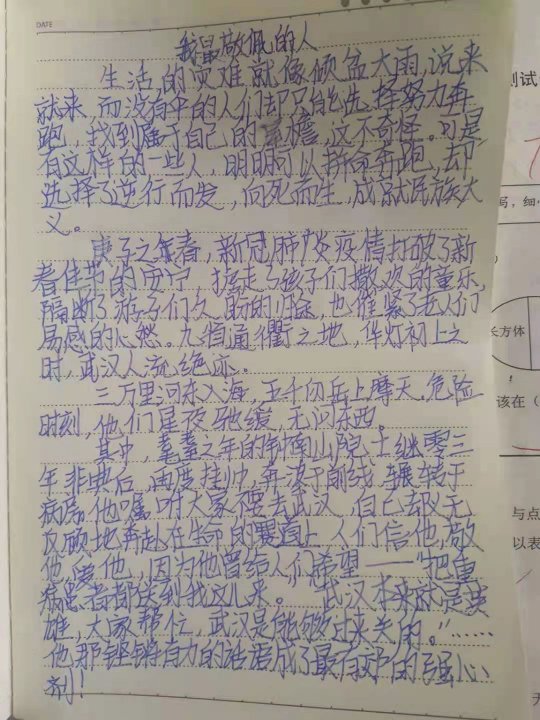 DATE
我最敬佩的人
生活的灾难就像倾盆大雨,说来
就来,而没有伞的人们却只能选择努力奔
跑,找到属于自己的屋檐,这不奇怪。可是
有这样的一些人,明明可以拼命奔跑,却
选择了逆行而发,向死而生,成就民族大
义。
庚子之年春,新冠肺炎疫情打破了新
春佳节的安宁,掠走了孩子们撒欢的童乐,
隔断了游子们久盼的归途,也催紧了老人们
易感的心愁。九省通衢之地,华灯初上之
时,武汉人流绝迹。
三万里河东入海,五千仞岳上摩天。危险
时刻,他们星夜驰缓,无问东西。
其中,耄耋之年的钟南山院士继零三
年非典后,再度挂帅,奔波于前线,辗转于
病房。他嘱咐大家不要去武汉,自己却义无
反顾地奔赴在生命的赛道上。人们信他,敬
他,爱他,因为他曾给人们希望——"把重
病患者都送到我这儿来。 武汉本来就是英
雄,大家帮忙,武汉是能够过来关的。"……
他那铿锵有力的话语成了最有效的强心
剂!
测试
写,细
长方体
该在(
与点
以表